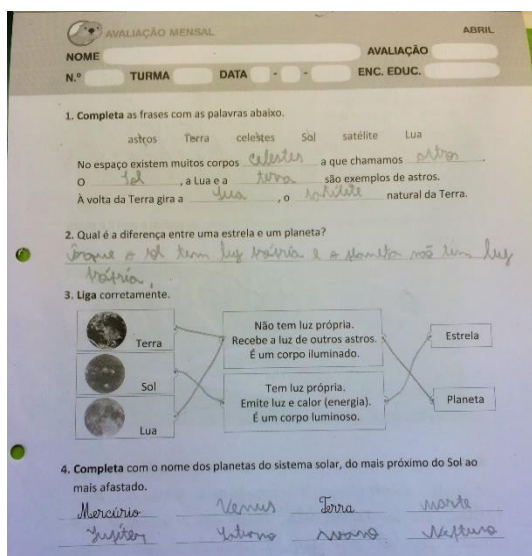 AVALIAÇÃO MENSAL
ABRIL
NOME AVALIAÇÃO
N.º TURMA DATA - - ENC. EDUC.
1. Completa as frases com as palavras abaixo.
astros Terra celestes Sol satélite Lua
No espaço existem muitos corpos celestes a que chamamos astros.
O Sol, a Lua e a terra são exemplos de astros.
À volta da Terra gira a Lua, o satélite natural da Terra.
2. Qual é a diferença entre uma estrela e um planeta?
Porque o sol tem luz própria e o planeta não tem luz
própria.
3. Liga corretamente.
Terra
Sol
Lua
Não tem luz própria.
Recebe a luz de outros astros.
É um corpo iluminado.
Tem luz própria.
Emite luz e calor (energia).
É um corpo luminoso.
Estrela
Planeta
4. Completa com o nome dos planetas do sistema solar, do mais próximo do Sol ao
mais afastado.
Mercúrio Venus Terra marte
Jupiter Neptuno